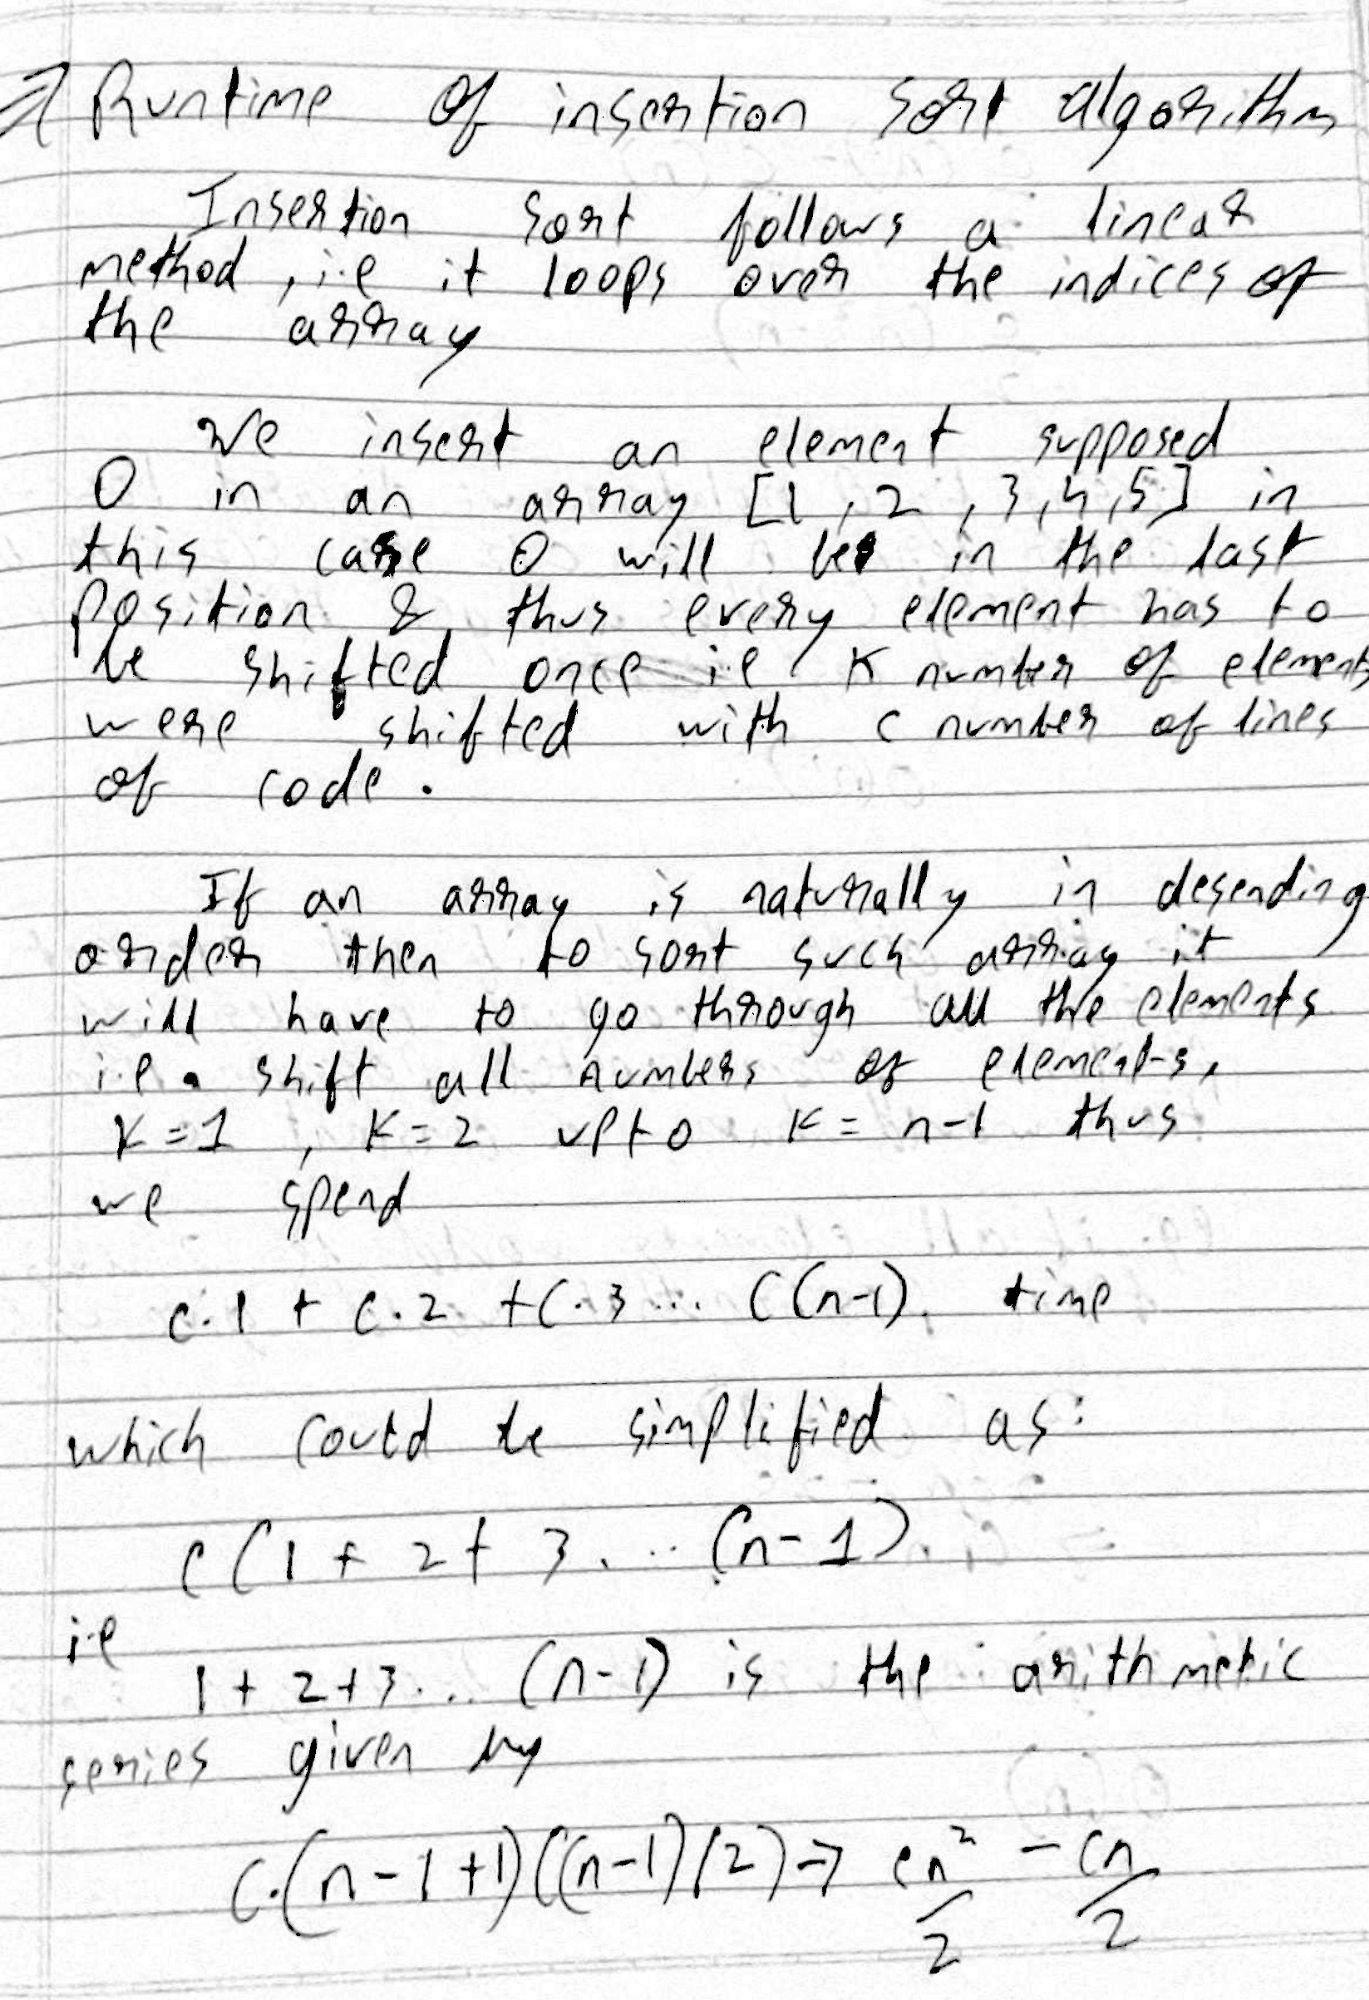 => Runtime of insertion sort algorithm
Insertion sort follows a linear
method, i.e it loops over the indices of
the array
We insert an element supposed
0 in an array [1, 2, 3, 4, 5] in
this case 0 will be in the last
position & thus every element has to
be shifted once i.e K number of elements
were shifted with c number of lines
of code.
If an array is naturally in desending
order then to sort such array it
will have to go through all the elements
i.e. shift all numbers of elements,
K=1, K=2 upto K=n-1 thus
we spend
c.1 + c.2 + c.3 ... c(n-1). time
which could be simplified as:
c(1 + 2 + 3 .... (n-1).
i.e
1 + 2 + 3 ... (n-1) is the arithmetic
series given by
c.(n-1+1)((n-1)/2) → cn²/2 - cn/2